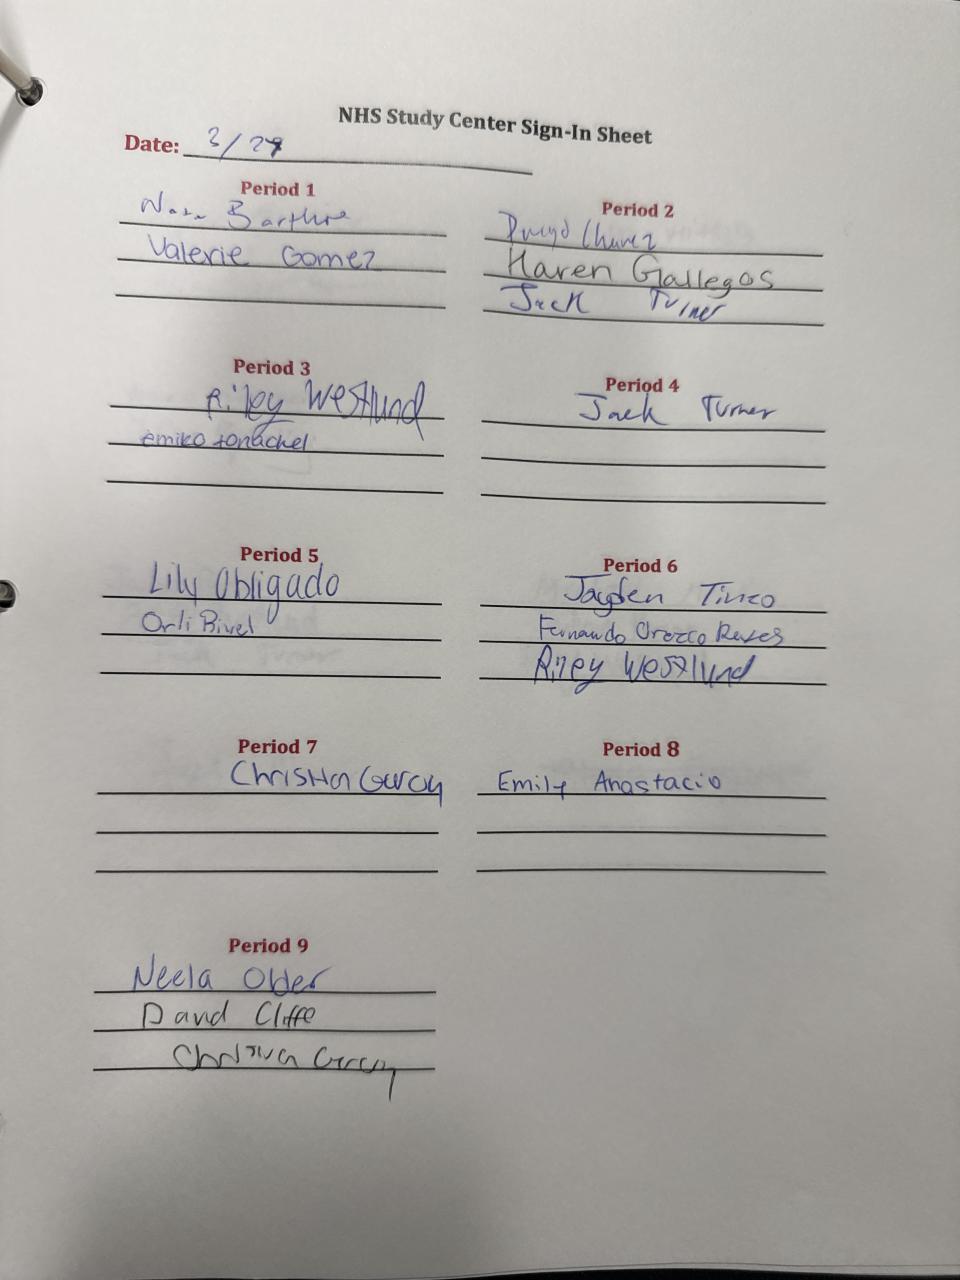 NHS Study Center Sign-In Sheet
Date: 3/29
Period 1
Barthre
Valerie Gomez
Period 2
Chavez
Karen Gallegos
Jack Turner
Period 3
Riley Westlund
emiko tonachel
Period 4
Jack Turner
Period 5
Lily Obligado
Orli Rivel
Period 6
Jayden Tinco
Fernando Orozco Reyes
Riley Westlund
Period 7
Christian Garay
Period 8
Emily Anastacio
Period 9
Neela Older
David Cliffe
Christian Garay